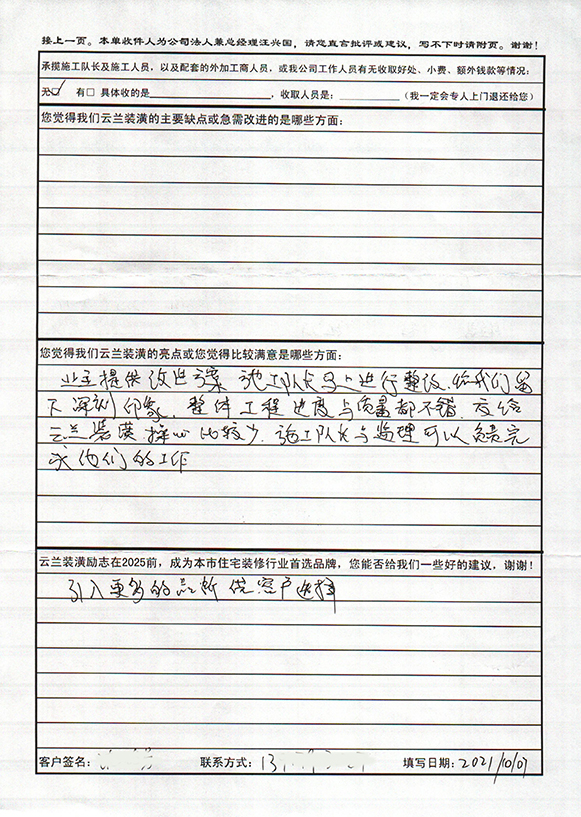 接上一页。本单收件人为公司法人兼总经理汪兴国，请您直言批评或建议，写不下时请附页。谢谢！
承揽施工队长及施工人员，以及配套的外加工商人员，或我公司工作人员有无收取好处、小费、额外钱款等情况：
无☑ 有□ 具体收的是____________，收取人员是：________（我一定会专人上门退还给您）
您觉得我们云兰装潢的主要缺点或急需改进的是哪些方面：
您觉得我们云兰装潢的亮点或您觉得比较满意是哪些方面：
业主提供改进方案 施工队长马上进行整改，给我们留
下深刻印象，整体工程进度与质量都不错，交给
云兰装潢操心比较少，施工队长与监理可以负责完
成他们的工作
云兰装潢励志在2025前，成为本市住宅装修行业首选品牌，您能否给我们一些好的建议，谢谢！
引入更多的品牌供客户选择
客户签名： 联系方式：13 填写日期：2021/10/07